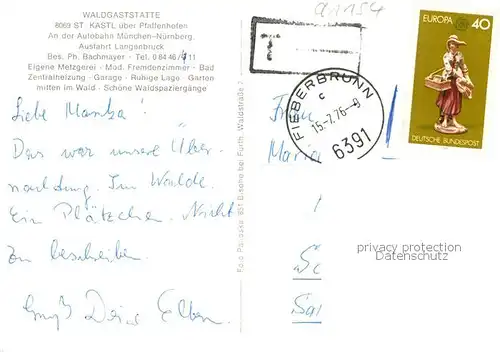 WALDGASTSTÄTTE
8069 ST. KASTL über Pfaffenhofen
An der Autobahn München-Nürnberg,
Ausfahrt Langenbruck
Bes. Ph. Bachmayer · Tel. 0 84 46/ 11
Eigene Metzgerei · Mod. Fremdenzimmer · Bad
Zentralheizung · Garage · Ruhige Lage · Garten
mitten im Wald · Schöne Waldspaziergänge
Liebe
Das war unsere Über-
nachtung. Im Walde.
Ein Plätzchen. Nicht
zu beschreiben.
Deine
T
FIEBERBRUNN
c
15.-7.76.-8
6391
EUROPA 40
DEUTSCHE BUNDESPOST
Frau
Maria
privacy protection
Datenschutz